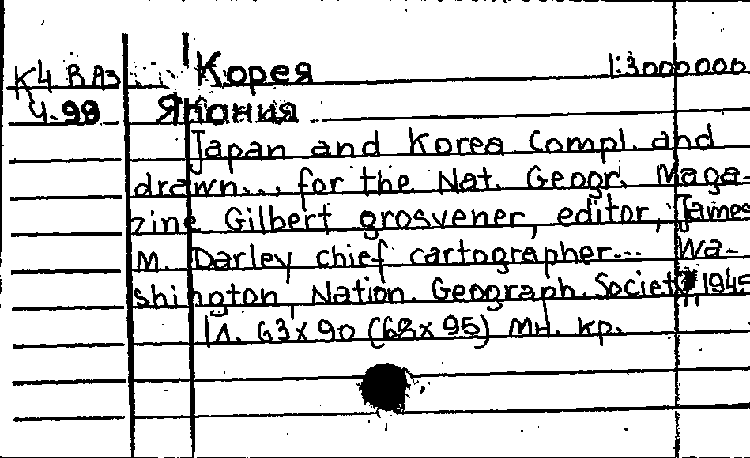 К4 ВАЗ Корея 1:3000000
4-99 Япония
Japan and Korea Compl. and
drawn... for the Nat. Geogr. Maga-
zine Gilbert grosvener, editor, James
M. Darley chief cartographer... Wa-
shington, Nation. Geograph. Society, 1945
1л. 63х90 (68х95) мн. кр.